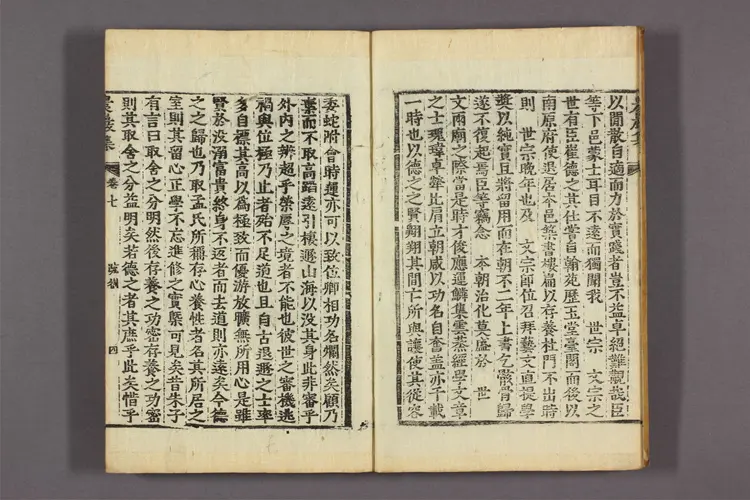 以閒散自適而力於實踐者豈不益卓絕難觀哉臣
等下邑蒙士耳目不遠而獨聞我　世宗　文宗之
世有臣崔德之其仕嘗自翰苑歷玉堂臺閣而後以
南原府使退居本邑築書樓扁以存養杜門不出時
則　世宗晚年也及　文宗即位召拜藝文直提學
獎以純實且將留用而在朝不二年上書乞骸骨歸
遂不復起焉臣等竊念　本朝治化莫盛於　世
文兩廟之際當是時才俊應運鱗集雲蒸經學文章
之士瑰瑋卓犖比肩立朝咸以功名自奮盖亦千載
一時也以德之之賢翱翔其間亡所與讓使其從容
委蛇附會時運亦可以致位卿相功名爛然矣顧乃
棄而不取高蹈遠引棲遯山海以没其身此非審乎
外內之辨超乎榮辱之境者不能也彼世之審機逃
禍與位極乃止者殆不足道也且自古退遯之士率
多自標其高以爲極致而優游放曠無所用心是雖
賢於没溺富貴終身不返者而去道則亦遠矣今德
之之歸也乃取孟氏所稱存心養性者名其所居之
室則其留心正學不忘進修之實槩可見矣昔朱子
有言曰取舍之分明然後存養之功密存養之功密
則其取舍之分益明矣若德之者其庶乎此矣惜乎
卷七
疏劄
四